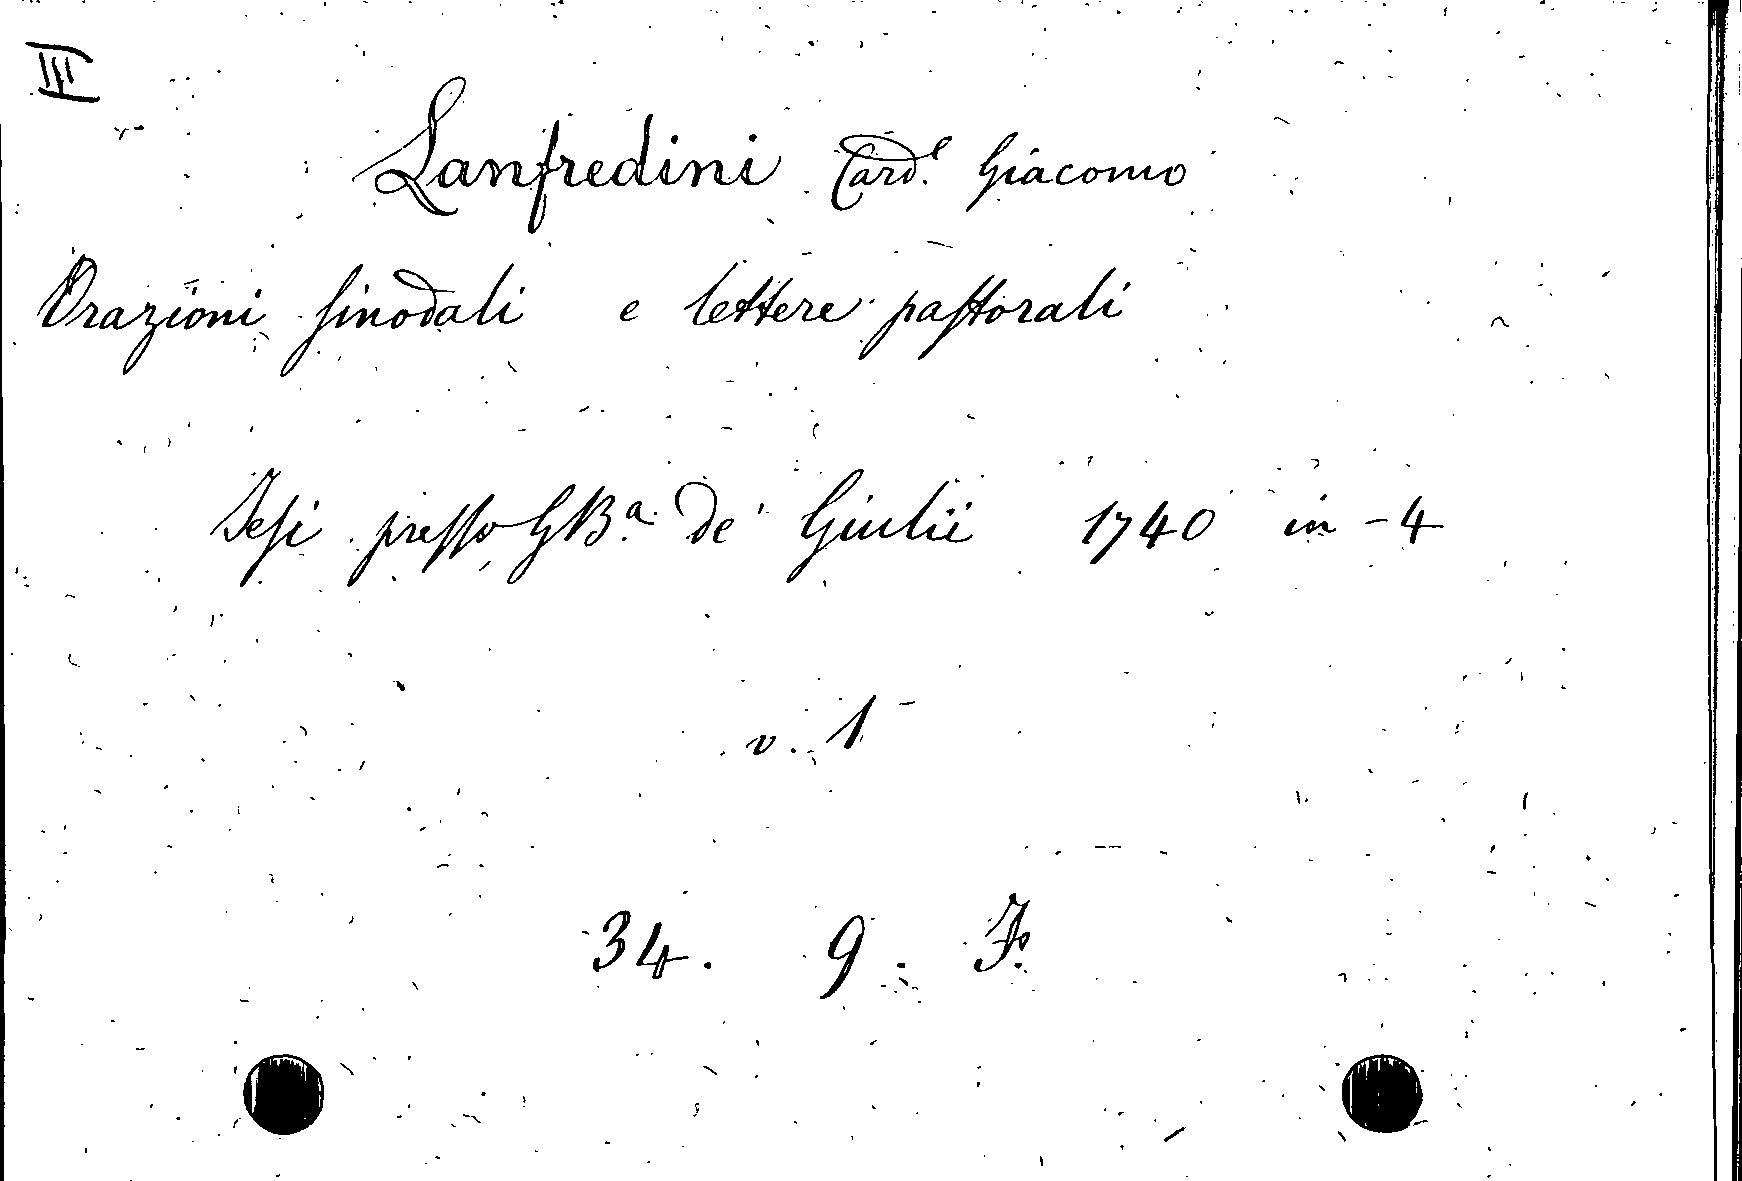 III
Lanfredini Card.l Giacomo
Orazioni sinodali e lettere pastorali
Jesi presso GBa. de' Giulii 1740 in-4
v. 1
34. 9. F.